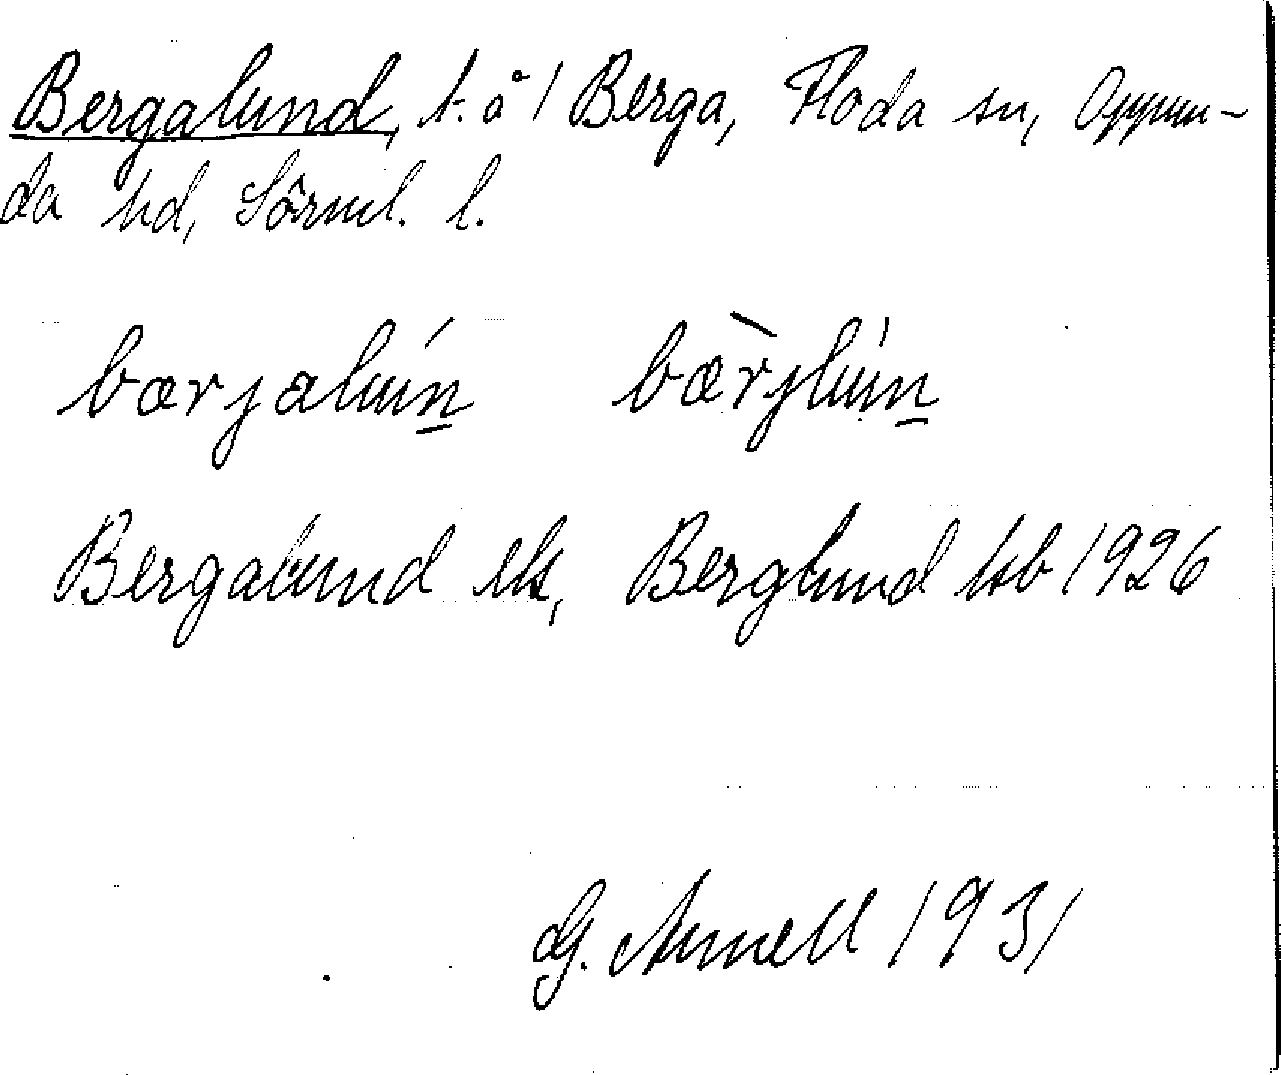 Bergalund, t. å 1 Berga, Floda sn, Oppun-
da hd, Sörml. l.
bærjaluń bæ̀rjluń
Bergalund ek, Berglund kb 1926
G. Arnell 1931